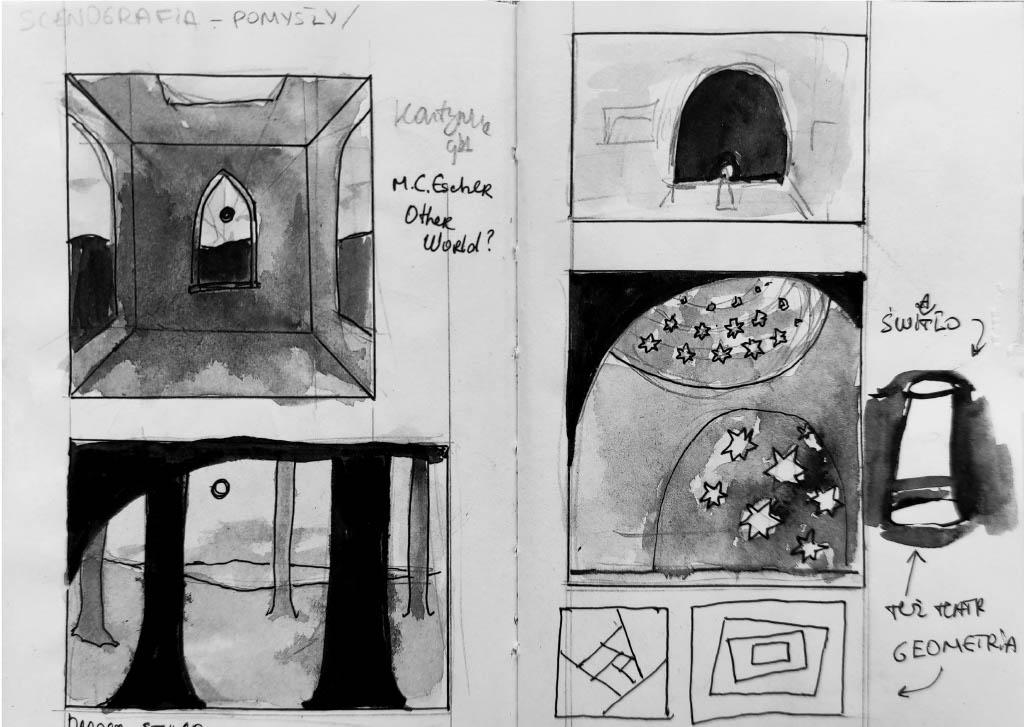 SCENOGRAFIA – POMYSŁY/
M.C. Escher
Other
World?
ŚWIATŁO
TEŻ TEATR
GEOMETRIA